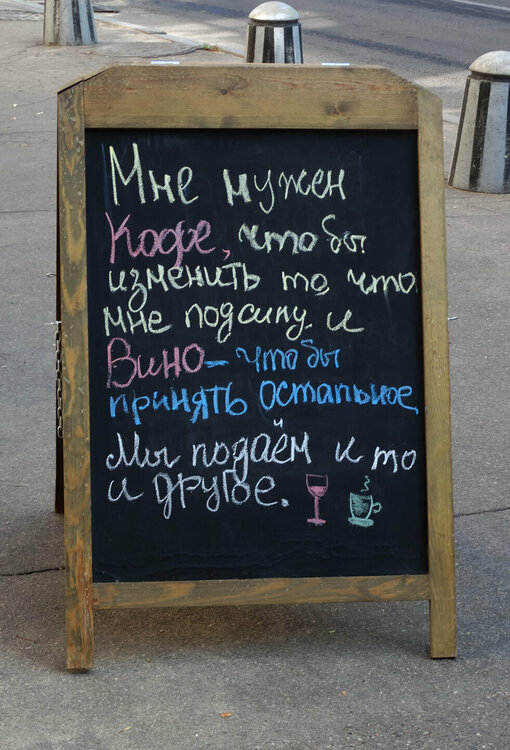 Мне нужен
Кофе, чтобы
изменить то, что
мне подсилу. и
Вино – чтобы
принять остальное
Мы подаём и то
и другое.